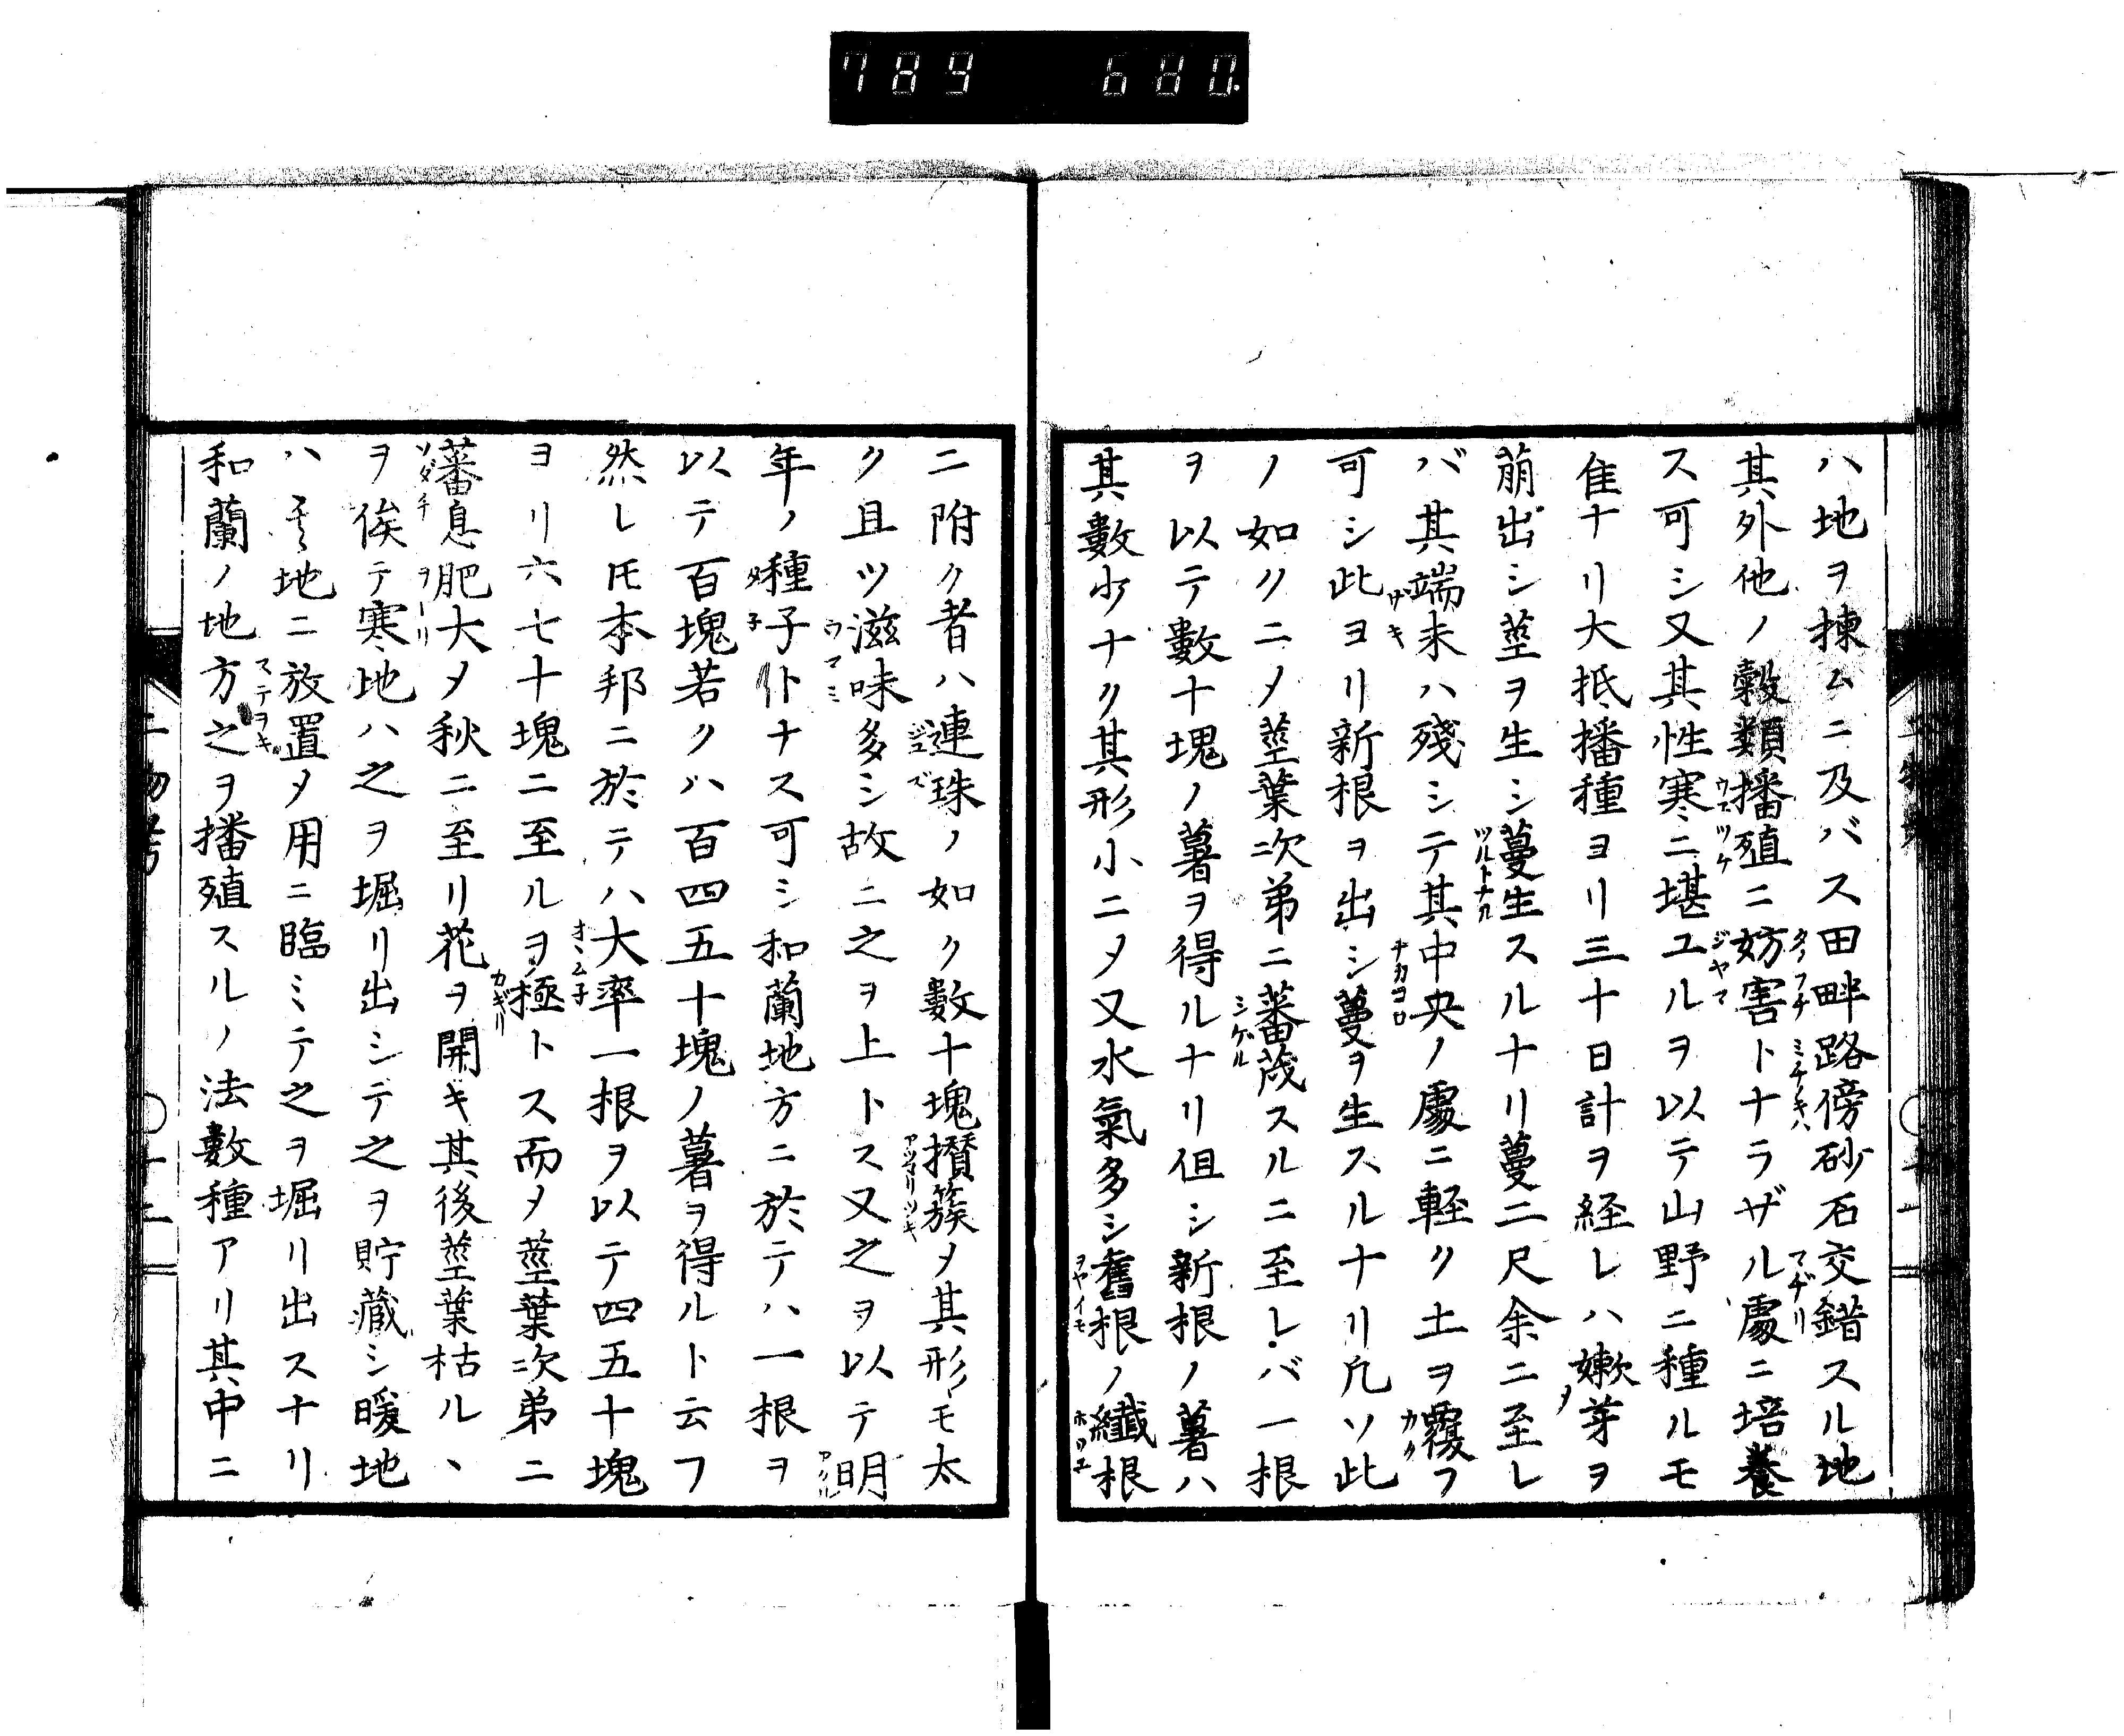 789 680.
ハ地ヲ揀ムニ及バス田畔路傍砂石交錯スル地
其外他ノ穀類播殖ニ妨害トナラザル處ニ培養
ス可シ又其性寒ニ堪ユルヲ以テ山野ニ種ルモ
隹ナリ大抵播種ヨリ三十日計ヲ経レハ嫩芽ヲ
萠出シ莖ヲ生シ蔓生スルナリ蔓二尺余ニ至レ
バ其端末ハ殘シテ其中央ノ處ニ軽ク土ヲ覆フ
可シ此ヨリ新根ヲ出シ蔓ヲ生スルナリ凢ソ此
ノ如クニメ莖葉次第ニ蕃茂スルニ至レバ一根
ヲ以テ數十塊ノ薯ヲ得ルナリ伹シ新根ノ薯ハ
其數少ナク其形小ニメ又水氣多シ舊根ノ纎根
ニ附ク者ハ連珠ノ如ク數十塊攅簇メ其形モ太
ク且ツ滋味多シ故ニ之ヲ上トス又之ヲ以テ明
年ノ種子トナス可シ和蘭地方ニ於テハ一根ヲ
以テ百塊若クハ百四五十塊ノ薯ヲ得ルト云フ
然レ𪜈本邦ニ於テハ大率一根ヲ以テ四五十塊
ヨリ六七十塊ニ至ルヲ極トス而メ莖葉次第ニ
蕃息肥大メ秋ニ至リ花ヲ開キ其後莖葉枯ル、
ヲ俟テ寒地ハ之ヲ堀リ出シテ之ヲ貯藏シ暖地
ハ其地ニ放置メ用ニ臨ミテ之ヲ堀リ出スナリ
和蘭ノ地方之ヲ播殖スルノ法數種アリ其中ニ
二物考